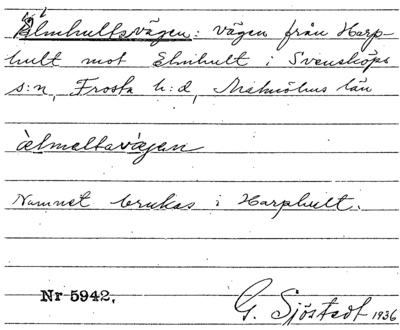 Älmhultsvägen: vägen från Harp-
hult mot Elmhult i Svensköps
s:n, Frosta h:d, Malmöhus län
älmaltavägen
Namnet brukas i Harphult.
Nr 5942.
G. Sjöstedt 1936